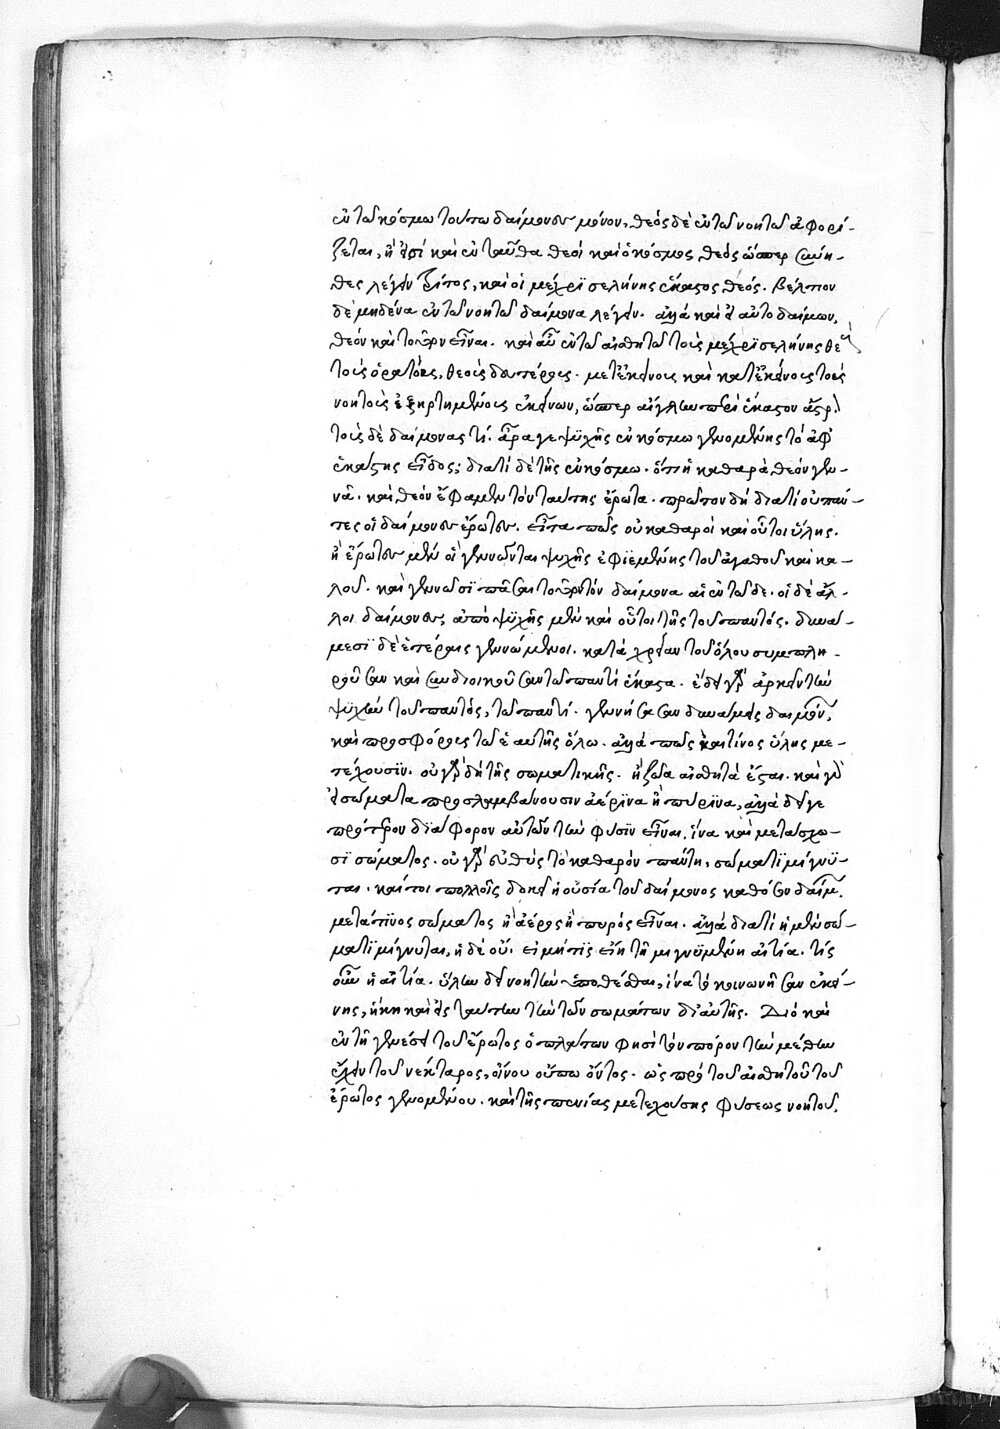 ἐν τῶ κόσμω τούτω δαίμονες μόνον, θεὸς δὲ ἐν τῶ νοητῶ ἀφορί-
ζεται, ἢ εἰσὶ καὶ ἐνταῦθα θεοὶ καὶ ὁ κόσμος θεὸς ὥσπερ σύνη-
θες λέγειν τρίτος, καὶ οἱ μέχρι σελήνης ἕκαστος θεός. βέλτιον
δὲ μηδένα ἐν τῶ νοητῶ δαίμονα λέγειν. ἀλλὰ καὶ εἰ αὐτοδαίμων,
θεὸν καὶ τοῦτον εἶναι. καὶ αὖ ἐν τῶ αἰσθητῶ τοὺς μέχρι σελήνης θε
τοὺς ὁρατοὺς, θεοὺς δευτέρους. μετ' ἐκείνους καὶ κατ' ἐκείνους τοὺς
νοητοὺς ἐξηρτημένους ἐκείνων, ὥσπερ αἴγλην περὶ ἕκαστον ἄστρ.
τοὺς δὲ δαίμονας τί. ἆρά γε ψυχῆς ἐν κόσμω γενομένης τὸ ἀφ'
ἑκάστης εἶδος; διατί δὲ τῆς ἐν κόσμω. ὅτι ἡ καθαρὰ θεὸν γεν-
νᾶ. καὶ θεὸν ἔφαμεν τὸν ταύτης ἔρωτα. πρῶτον δὴ διατί οὐ πάν-
τες οἱ δαίμονες ἔρωτες. εἶτα πῶς οὐ καθαροὶ καὶ οὗτοι ὕλης.
ἢ ἔρωτες μὲν οἳ γεννῶνται ψυχῆς ἐφιεμένης τοῦ ἀγαθοῦ καὶ κα-
λοῦ. καὶ γεννῶσι πᾶσαι τοῦτον τὸν δαίμονα αἱ ἐν τῶδε. οἱ δὲ ἄλ-
λοι δαίμονες ἀπὸ ψυχῆς μὲν καὶ οὗτοι τῆς τοῦ παντός. δυνά-
μεσι δὲ ἑτέραις γεννώμενοι. κατὰ χρείαν τοῦ ὅλου συμπλη-
ροῦσιν καὶ συνδιοικοῦσιν τῶ παντὶ ἕκαστα. ἔδει γὰρ ἀρκεῖν τὴν
ψυχὴν τοῦ παντός, τῶ παντί. γεννήσασαν δυνάμεις δαιμόν,
καὶ προσφόρους τῶ ἑαυτῆς ὅλω. ἀλλὰ πῶς καὶ τίνος ὕλης με-
τέχουσιν. οὐ γὰρ δὴ τῆς σωματικῆς. ἢ ζῶα αἰσθητὰ ἔσται. καὶ γὰρ
εἰ σώματα προσλαμβάνουσιν ἀέρινα ἢ πύρινα, ἀλλὰ δεῖ γε
πρότερον διάφορον αὐτῶν τὴν φύσιν εἶναι, ἵνα καὶ μετάσχω-
σι σώματος. οὐ γὰρ εὐθὺς τὸ καθαρὸν πάντη, σώματι μίγνυ-
ται. καίτοι πολλοῖς δοκεῖ ἡ οὐσία τοῦ δαίμονος καθόσον δαίμ.
μετά τινος σώματος ἢ ἀέρος ἢ πυρός εἶναι. ἀλλὰ διατί ἡ μὲν σώ-
ματι μίγνυται, ἡ δὲ οὔ. εἰ μή τις εἴη τῆ μιγνυμένη αἰτία. τίς
οὖν ἡ αἰτία. ὕλην δεῖ νοητὴν ὑποθέσθαι, ἵνα τὸ κοινωνῆσαν ἐκεί-
νης, ἥκη καὶ εἰς ταύτην τὴν τῶν σωμάτων δι' αὐτῆς. Διὸ καὶ
ἐν τῆ γενέσει τοῦ ἔρωτος ὁ πλάτων φησὶ τὸν πόρον τὴν μέθην
ἔχειν τοῦ νέκταρος, οἴνου οὔπω ὄντος. ὡς πρὸ τοῦ αἰσθητοῦ τοῦ
ἔρωτος γενομένου. καὶ τῆς πενίας μετεχούσης φύσεως νοητοῦ.